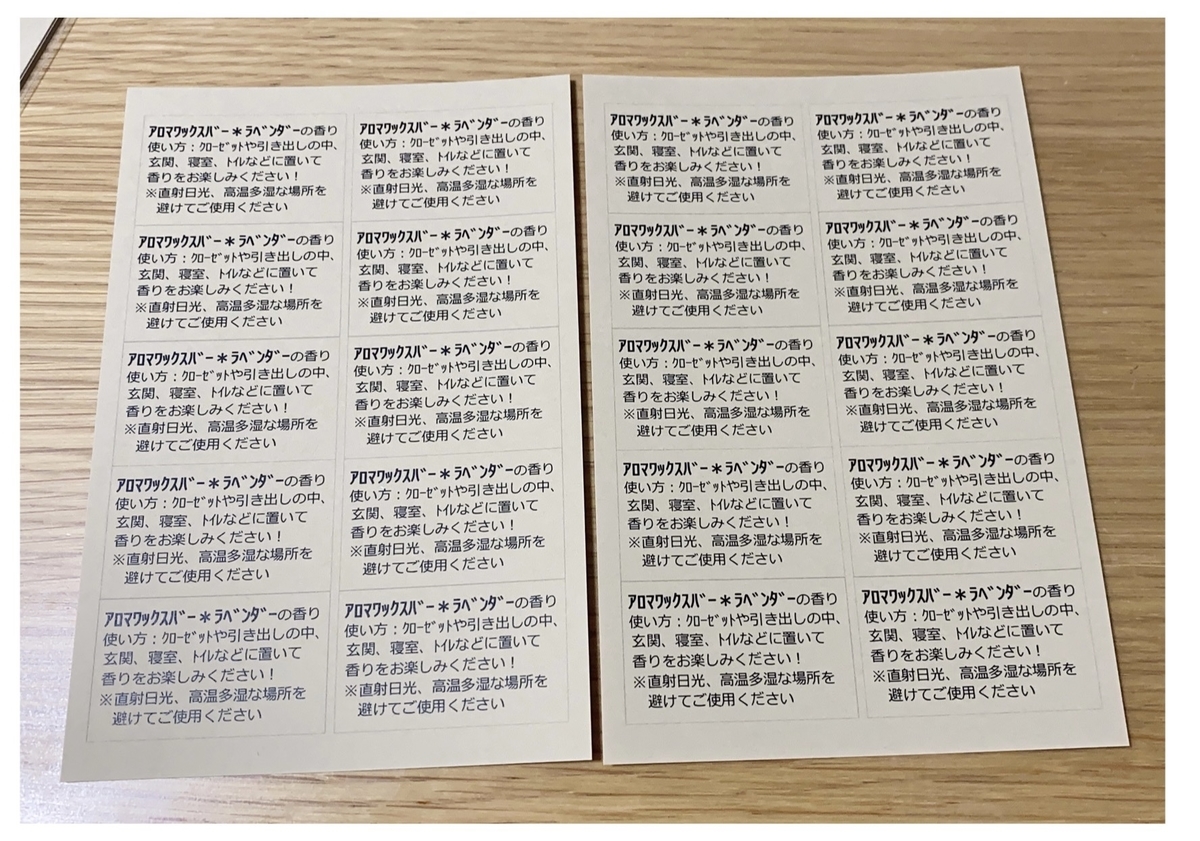 ｱﾛﾏワックスﾊﾞー＊ﾗﾍﾞﾝﾀﾞｰの香り
使い方：ｸﾛｰｾﾞｯﾄや引き出しの中、
玄関、寝室、ﾄｲﾚなどに置いて
香りをお楽しみください！
※直射日光、高温多湿な場所を
避けてご使用ください
ｱﾛﾏワックスﾊﾞー＊ﾗﾍﾞﾝﾀﾞｰの香り
使い方：ｸﾛｰｾﾞｯﾄや引き出しの中、
玄関、寝室、ﾄｲﾚなどに置いて
香りをお楽しみください！
※直射日光、高温多湿な場所を
避けてご使用ください
ｱﾛﾏワックスﾊﾞー＊ﾗﾍﾞﾝﾀﾞｰの香り
使い方：ｸﾛｰｾﾞｯﾄや引き出しの中、
玄関、寝室、ﾄｲﾚなどに置いて
香りをお楽しみください！
※直射日光、高温多湿な場所を
避けてご使用ください
ｱﾛﾏワックスﾊﾞー＊ﾗﾍﾞﾝﾀﾞｰの香り
使い方：ｸﾛｰｾﾞｯﾄや引き出しの中、
玄関、寝室、ﾄｲﾚなどに置いて
香りをお楽しみください！
※直射日光、高温多湿な場所を
避けてご使用ください
ｱﾛﾏワックスﾊﾞー＊ﾗﾍﾞﾝﾀﾞｰの香り
使い方：ｸﾛｰｾﾞｯﾄや引き出しの中、
玄関、寝室、ﾄｲﾚなどに置いて
香りをお楽しみください！
※直射日光、高温多湿な場所を
避けてご使用ください
ｱﾛﾏワックスﾊﾞー＊ﾗﾍﾞﾝﾀﾞｰの香り
使い方：ｸﾛｰｾﾞｯﾄや引き出しの中、
玄関、寝室、ﾄｲﾚなどに置いて
香りをお楽しみください！
※直射日光、高温多湿な場所を
避けてご使用ください
ｱﾛﾏワックスﾊﾞー＊ﾗﾍﾞﾝﾀﾞｰの香り
使い方：ｸﾛｰｾﾞｯﾄや引き出しの中、
玄関、寝室、ﾄｲﾚなどに置いて
香りをお楽しみください！
※直射日光、高温多湿な場所を
避けてご使用ください
ｱﾛﾏワックスﾊﾞー＊ﾗﾍﾞﾝﾀﾞｰの香り
使い方：ｸﾛｰｾﾞｯﾄや引き出しの中、
玄関、寝室、ﾄｲﾚなどに置いて
香りをお楽しみください！
※直射日光、高温多湿な場所を
避けてご使用ください
ｱﾛﾏワックスﾊﾞー＊ﾗﾍﾞﾝﾀﾞｰの香り
使い方：ｸﾛｰｾﾞｯﾄや引き出しの中、
玄関、寝室、ﾄｲﾚなどに置いて
香りをお楽しみください！
※直射日光、高温多湿な場所を
避けてご使用ください
ｱﾛﾏワックスﾊﾞー＊ﾗﾍﾞﾝﾀﾞｰの香り
使い方：ｸﾛｰｾﾞｯﾄや引き出しの中、
玄関、寝室、ﾄｲﾚなどに置いて
香りをお楽しみください！
※直射日光、高温多湿な場所を
避けてご使用ください
ｱﾛﾏワックスﾊﾞー＊ﾗﾍﾞﾝﾀﾞｰの香り
使い方：ｸﾛｰｾﾞｯﾄや引き出しの中、
玄関、寝室、ﾄｲﾚなどに置いて
香りをお楽しみください！
※直射日光、高温多湿な場所を
避けてご使用ください
ｱﾛﾏワックスﾊﾞー＊ﾗﾍﾞﾝﾀﾞｰの香り
使い方：ｸﾛｰｾﾞｯﾄや引き出しの中、
玄関、寝室、ﾄｲﾚなどに置いて
香りをお楽しみください！
※直射日光、高温多湿な場所を
避けてご使用ください
ｱﾛﾏワックスﾊﾞー＊ﾗﾍﾞﾝﾀﾞｰの香り
使い方：ｸﾛｰｾﾞｯﾄや引き出しの中、
玄関、寝室、ﾄｲﾚなどに置いて
香りをお楽しみください！
※直射日光、高温多湿な場所を
避けてご使用ください
ｱﾛﾏワックスﾊﾞー＊ﾗﾍﾞﾝﾀﾞｰの香り
使い方：ｸﾛｰｾﾞｯﾄや引き出しの中、
玄関、寝室、ﾄｲﾚなどに置いて
香りをお楽しみください！
※直射日光、高温多湿な場所を
避けてご使用ください
ｱﾛﾏワックスﾊﾞー＊ﾗﾍﾞﾝﾀﾞｰの香り
使い方：ｸﾛｰｾﾞｯﾄや引き出しの中、
玄関、寝室、ﾄｲﾚなどに置いて
香りをお楽しみください！
※直射日光、高温多湿な場所を
避けてご使用ください
ｱﾛﾏワックスﾊﾞー＊ﾗﾍﾞﾝﾀﾞｰの香り
使い方：ｸﾛｰｾﾞｯﾄや引き出しの中、
玄関、寝室、ﾄｲﾚなどに置いて
香りをお楽しみください！
※直射日光、高温多湿な場所を
避けてご使用ください
ｱﾛﾏワックスﾊﾞー＊ﾗﾍﾞﾝﾀﾞｰの香り
使い方：ｸﾛｰｾﾞｯﾄや引き出しの中、
玄関、寝室、ﾄｲﾚなどに置いて
香りをお楽しみください！
※直射日光、高温多湿な場所を
避けてご使用ください
ｱﾛﾏワックスﾊﾞー＊ﾗﾍﾞﾝﾀﾞｰの香り
使い方：ｸﾛｰｾﾞｯﾄや引き出しの中、
玄関、寝室、ﾄｲﾚなどに置いて
香りをお楽しみください！
※直射日光、高温多湿な場所を
避けてご使用ください
ｱﾛﾏワックスﾊﾞー＊ﾗﾍﾞﾝﾀﾞｰの香り
使い方：ｸﾛｰｾﾞｯﾄや引き出しの中、
玄関、寝室、ﾄｲﾚなどに置いて
香りをお楽しみください！
※直射日光、高温多湿な場所を
避けてご使用ください
ｱﾛﾏワックスﾊﾞー＊ﾗﾍﾞﾝﾀﾞｰの香り
使い方：ｸﾛｰｾﾞｯﾄや引き出しの中、
玄関、寝室、ﾄｲﾚなどに置いて
香りをお楽しみください！
※直射日光、高温多湿な場所を
避けてご使用ください